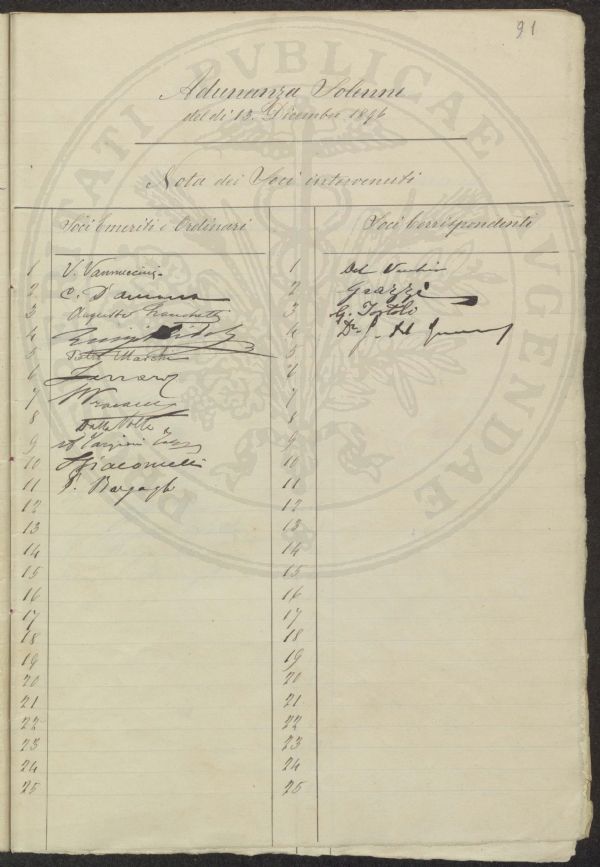 91
Adunanza Solenne
del dì 13. Dicembre 1896
Nota dei Soci intervenuti
Soci Emeriti e Ordinari
Soci Corrispondenti
1 V. Vannuccini
2 C. D'
3 Augusto Franchetti
4 Luigi
5 Marchi
6
7
8 Dalla Volta
9 A. Targioni Tozz
10 Giacomelli
11 P. Bargagli
12
13
14
15
16
17
18
19
20
21
22
23
24
25
1 Del Vecchio
2 Grazzi
3 G. Tortoli
4 Dr. G. del
5
6
7
8
9
10
11
12
13
14
15
16
17
18
19
20
21
22
23
24
25
PUBLICAE
AUGENDAE